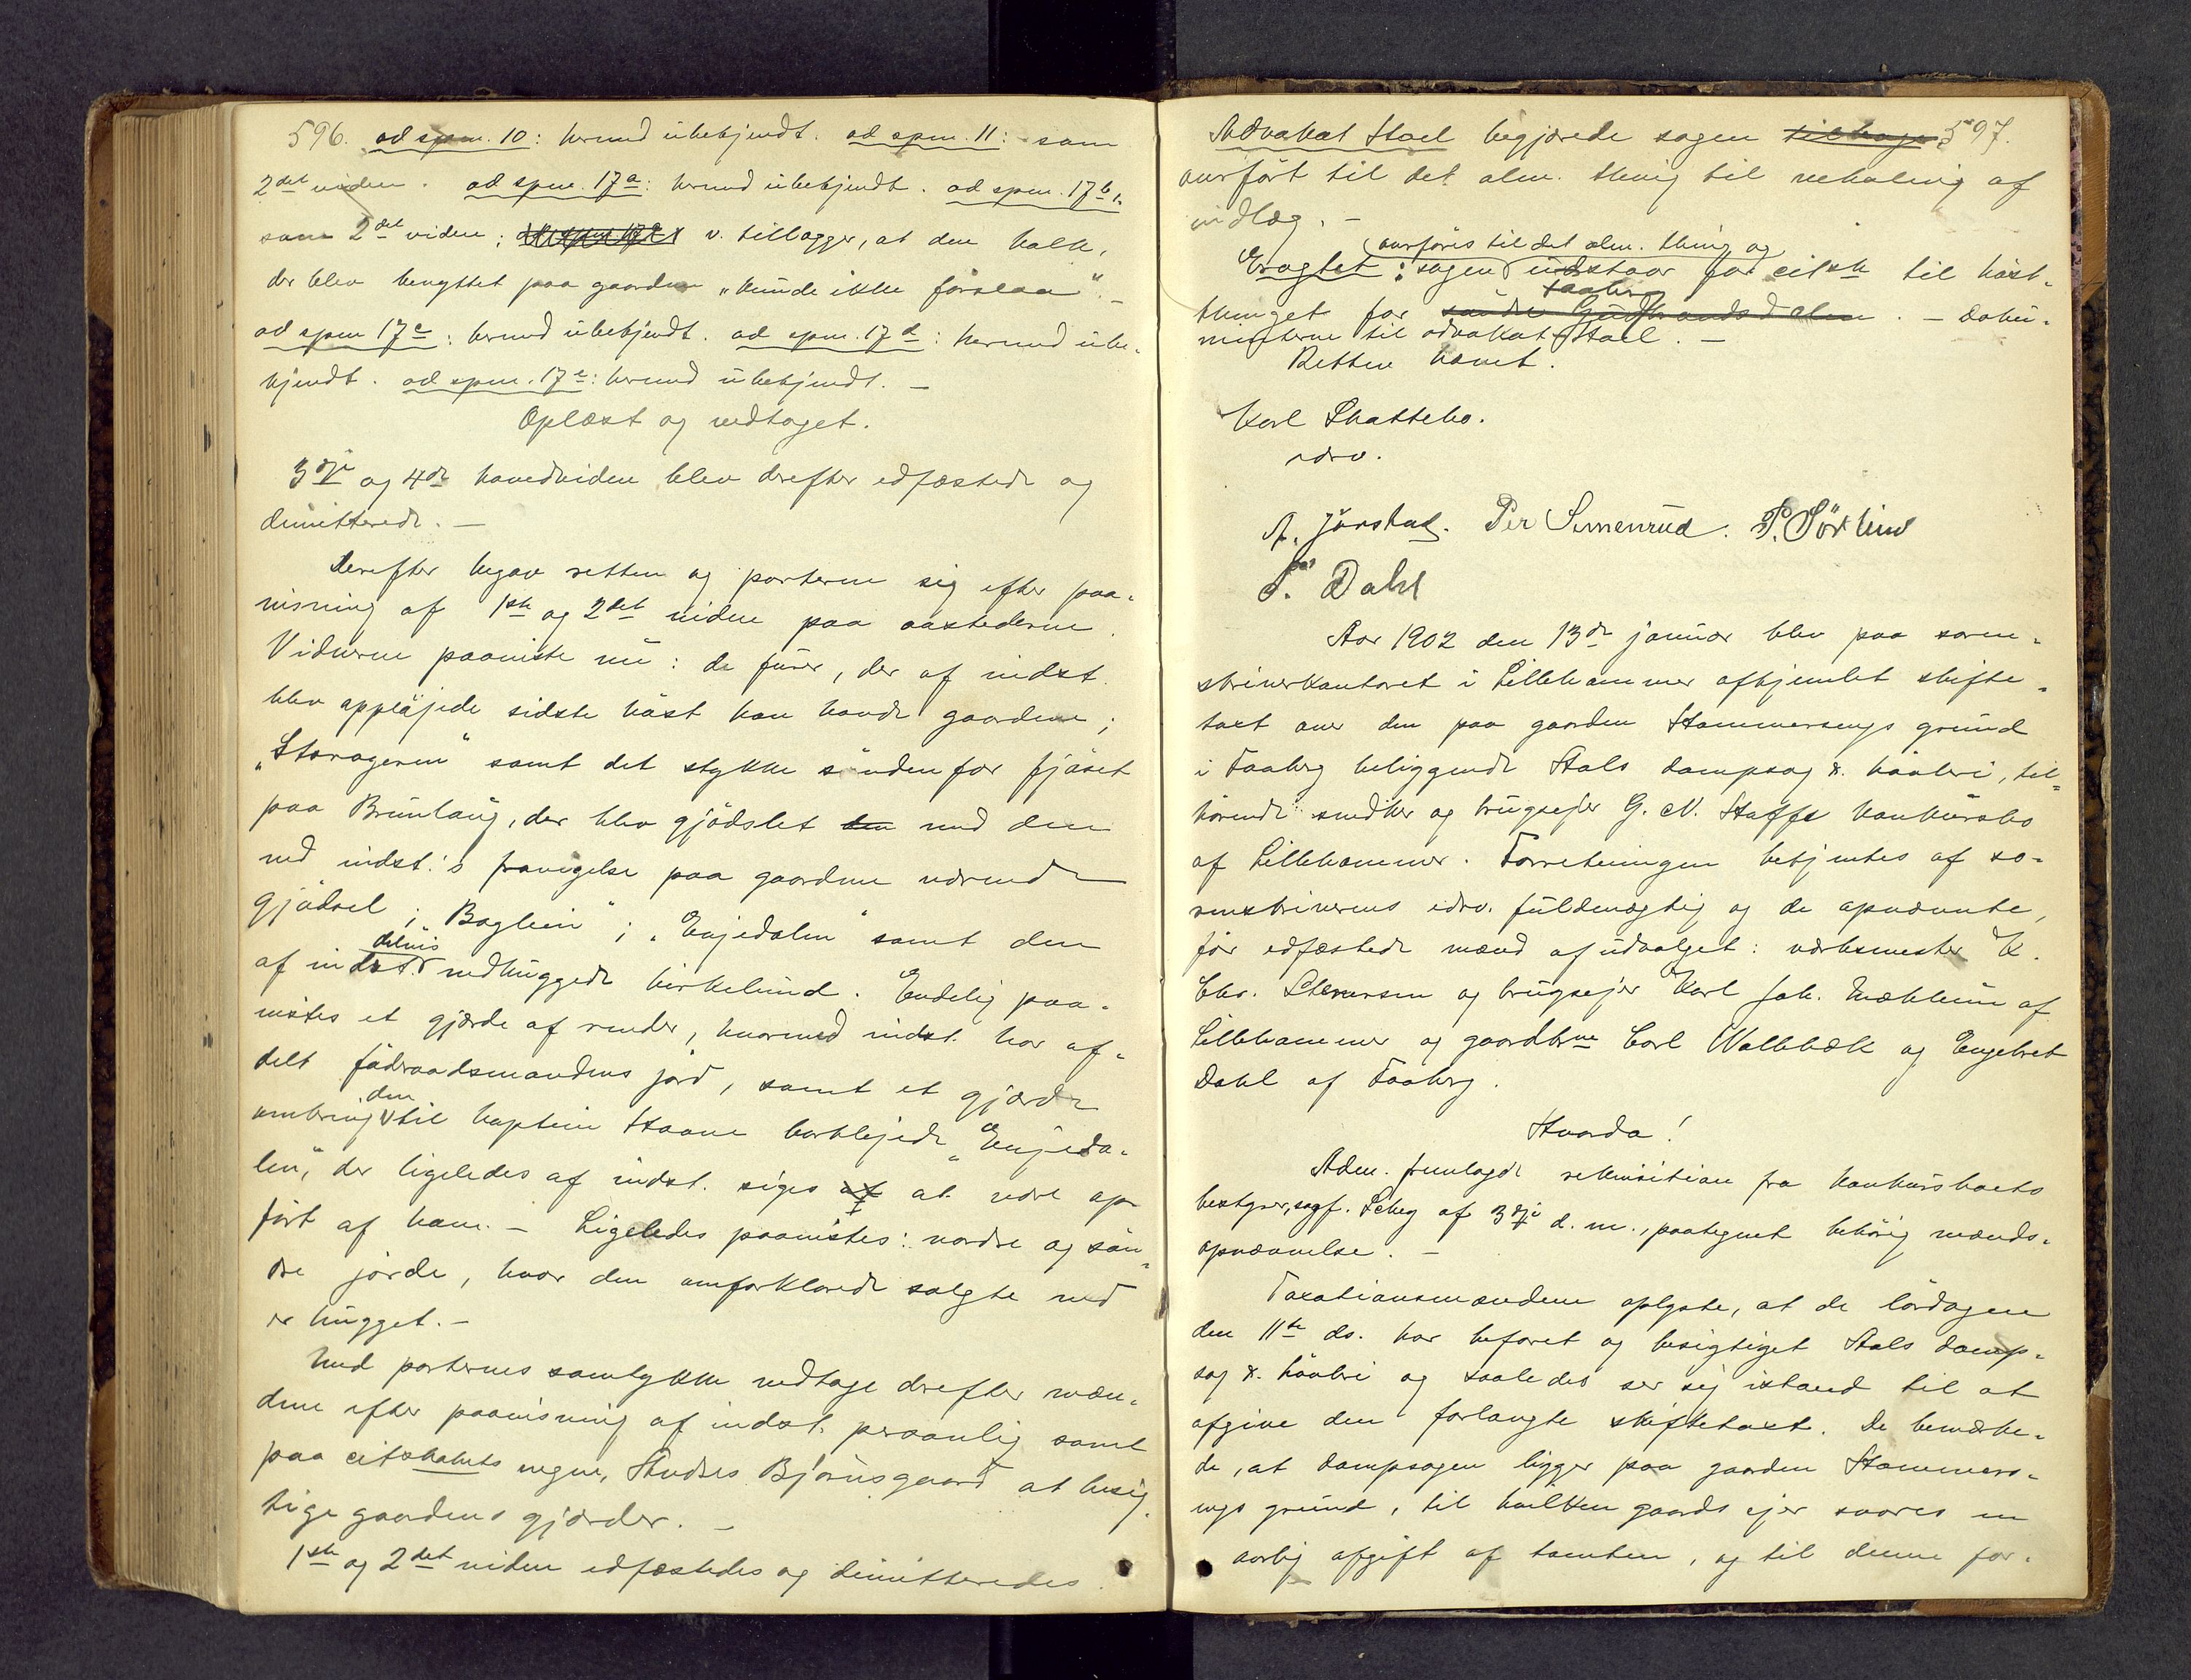 596. ad spm. 10: hermed ubekjendt. ad spm. 11: som
2det vidne. ad spm. 17a: hermed ubekjendt. ad spm. 17b:
som 2det vidne; v. tillægger, at den kalk,
der blev benyttet paa gaarden "kunde ikke forslaa". –
ad spm 17c: hermed ubekjendt. ad spm. 17d: hermed ube-
kjendt. ad spm. 17e: hermed ubekjendt. –
Oplæst og vedtaget.
3dje og 4de hovedvidne blev derefter edfæstede og
dimitterede. –
Derefter begav retten og parterne sig efter paa-
visning af 1ste og 2det vidne paa aastederne.
Vidnerne paaviste nu: de furer, der af indst.
blev oppløjede sidste høst han havde gaardene;
"Storageren" samt det stykke søndenfor fjøset
paa Brunlaug, der blev gjødslet den med den
ved indst.'s fravigelse paa gaardene værende
gjødsel; "Baglien"; "Engjedalen" samt den
af indst. delvis nedhuggede birkelund. Endelig paa-
vistes et gjærde af render, hvormed indst. har af-
delt føderaadsmandens jord, samt et gjærde
omkring den til kaptein Staane bortlejede "Engjeda-
len", der ligeledes af indst. siges at at være op-
ført af ham. – Ligeledes paavistes: nordre og søn-
dre jorde, hvor den omforklarede solgte ved
er hugget. –
Med parternes samtykke vedtoges derefter mæn-
dene efter paavisning af indst. personlig samt
paa citskabets vegne, Andres Bjørnsgaard at besig-
tige gaardens gjærder. –
1ste og 2det vidne edfæstedes og dimitteredes.
597.
Advokat Stael begjærede sagen tilbage
overført til det alm. thing til vekaling af
indlæg. –
Eragtet: sagen overføres til det alm. thing og udstaar for citsk til høst-
thinget for søndre Gudbrandsdalen Faaberg. – Doku-
menterne til advokat Stael. –
Retten hævet.
Karl Skattebo.
edsv.
A. Jørstad. Per Simenrud. P. Sørlien
P. Dahl
Aar 1902 den 13de januar blev paa soren-
skriverkontoret i Lillehammer afhjemlet skifte-
taxt over den paa gaarden Stammersengs grund
i Faaberg beliggende Stals dampsag & høvleri, til-
hørende snedker og brugsejer G. N. Staffs konkursbo
af Lillehammer. Forretningen betjentes af so-
renskriverens edsv. fuldmægtig og de opnævnte,
før edfæstede mænd af udvalget: værksmester K.
Chr. Stenersen og brugsejer Karl Joh. Mæhlum af
Lillehammer og gaardbrne Carl Wallebæk og Engebret
Dahl af Faaberg.
Hvorda!
Adm. fremlagde rekvisition fra konkursboets
bestyrer, sagf. Scheg af 3dje d. m., paategnet behørig mænds-
opnævnelse. –
Taxationsmændene oplyste, at de lørdagen
den 11te ds. har befaret og besigtiget Stals damp-
sag & høvleri og saaledes ser sig istand til at
afgive den forlangte skiftetaxt. De bemærke-
de, at dampsagen ligger paa gaarden Stammers-
engs grund, til hvilken gaards ejer svares en
aarlig afgift af tomten, og til denne for-